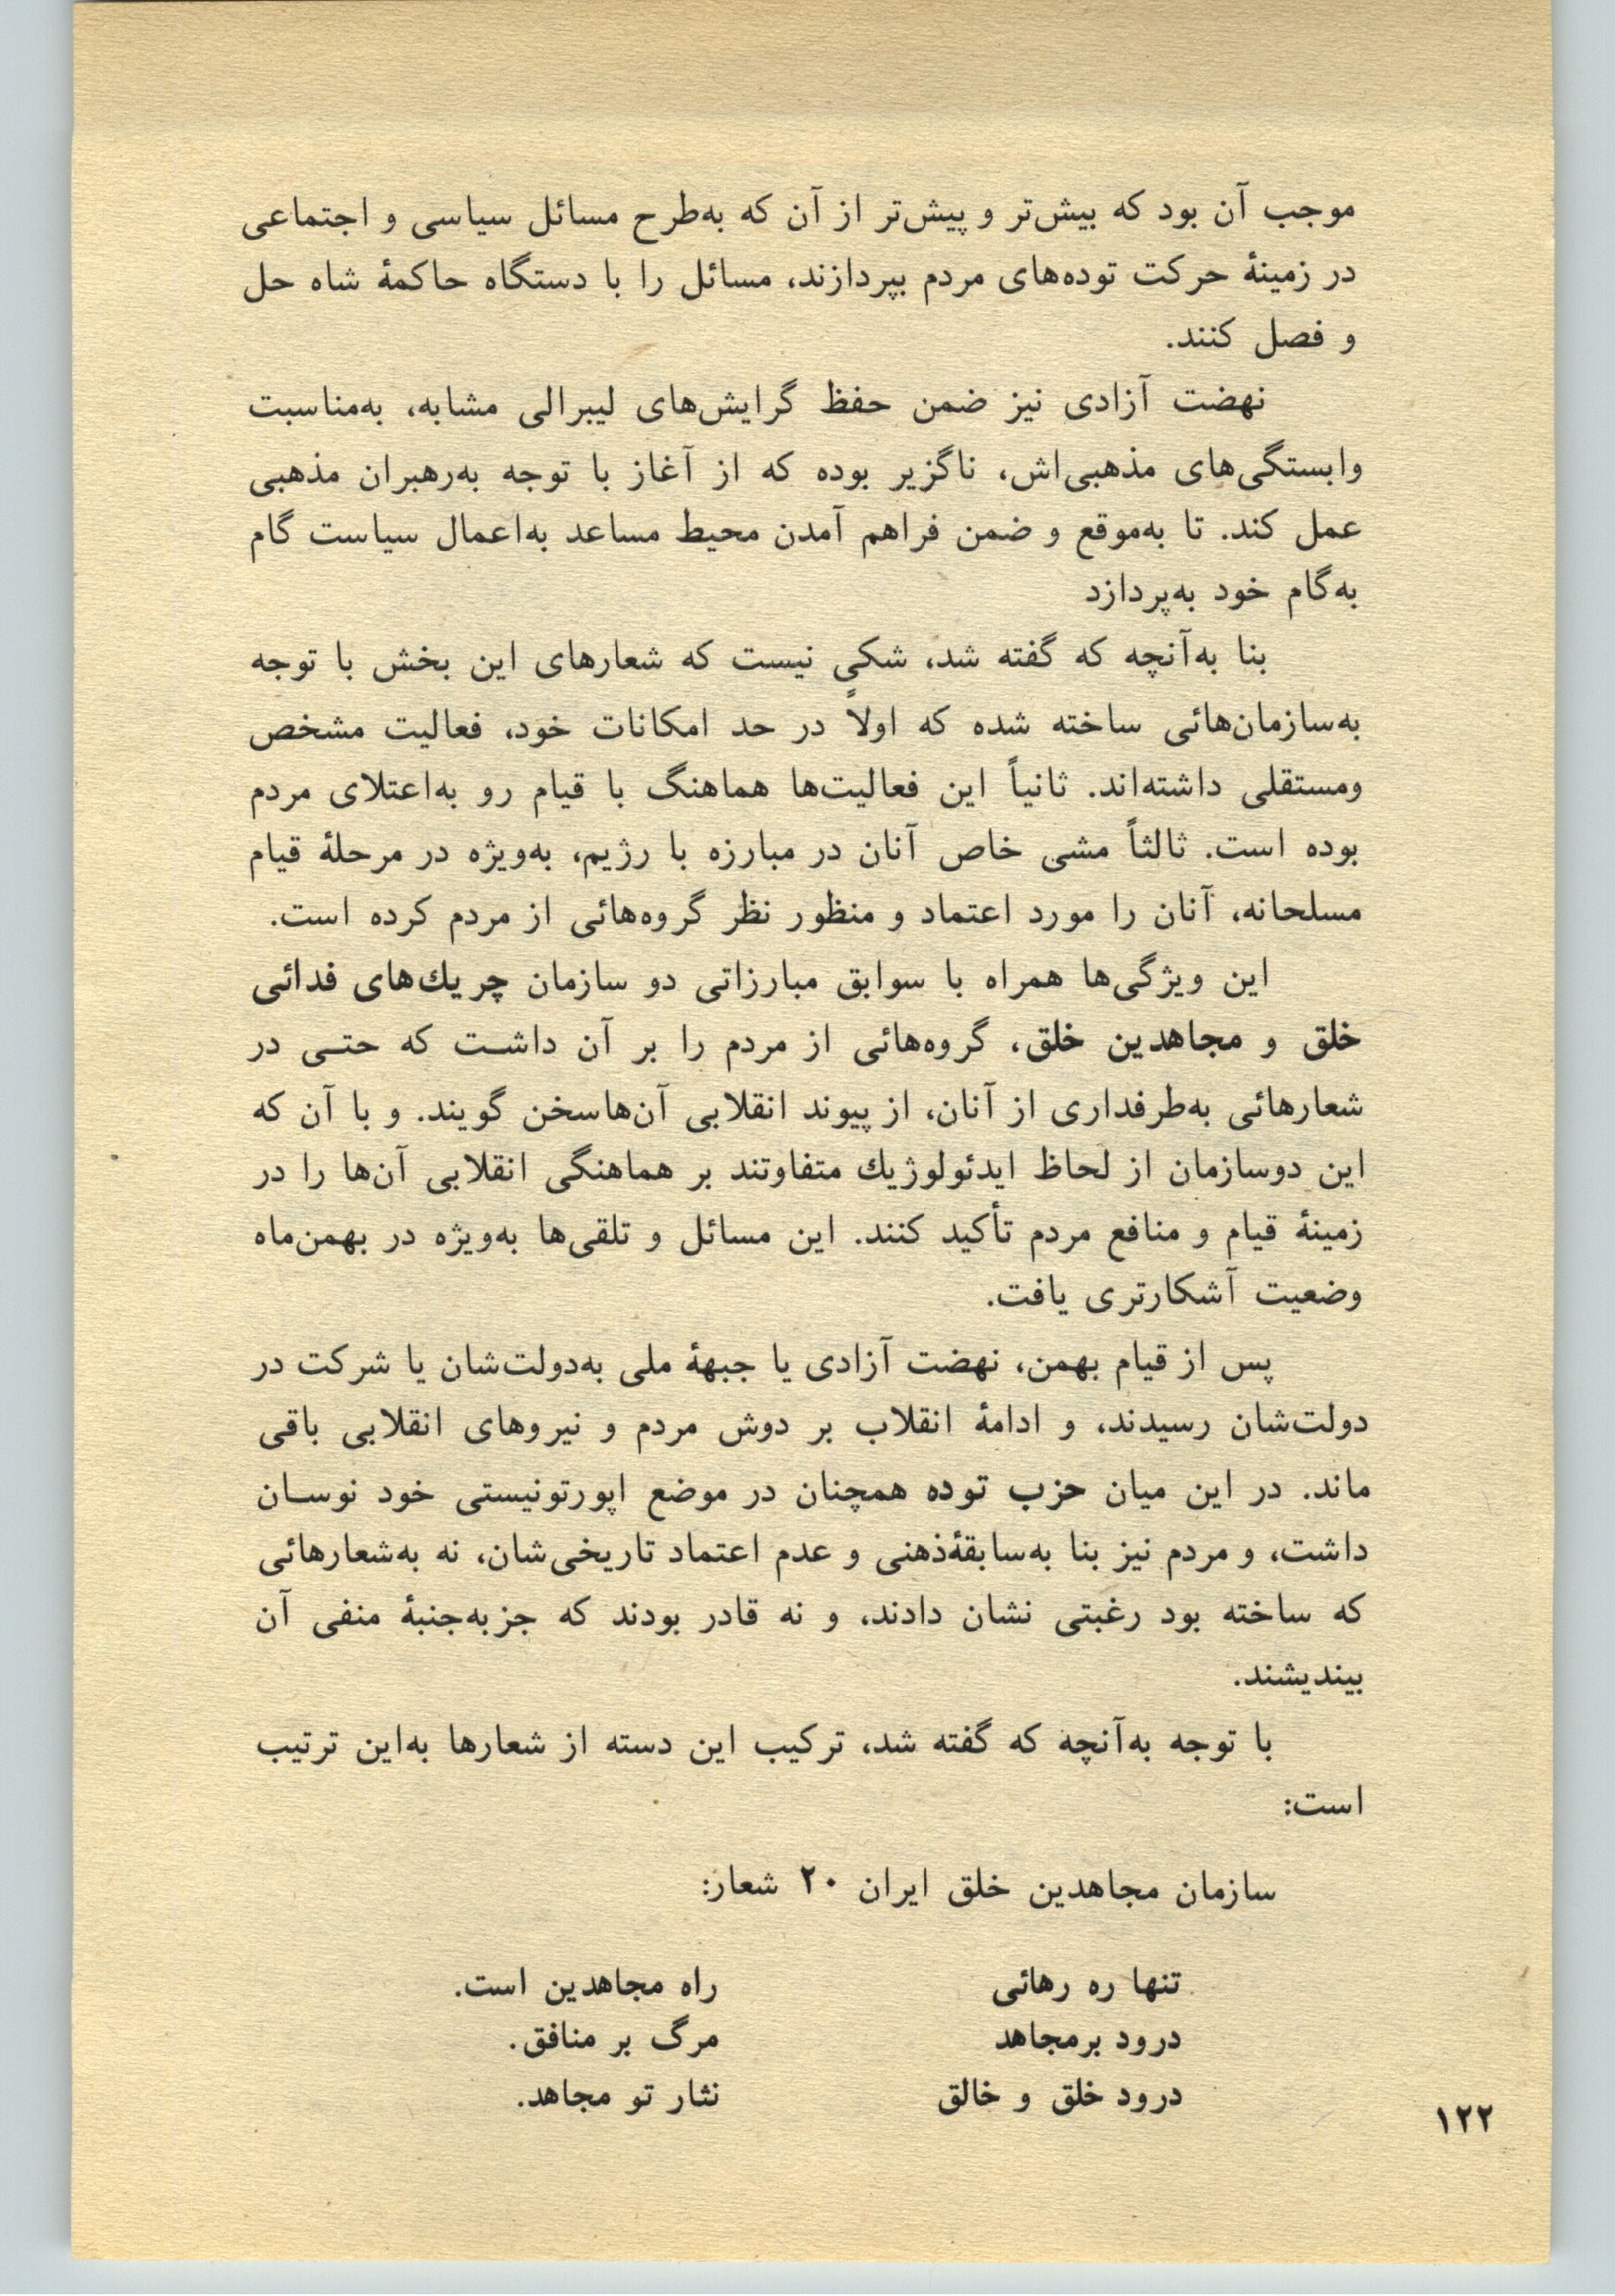 موجب آن بود که بیش‌تر و پیش‌تر از آن که به‌طرح مسائل سیاسی و اجتماعی
در زمینهٔ حرکت توده‌های مردم بپردازند، مسائل را با دستگاه حاکمهٔ شاه حل
و فصل کنند.
نهضت آزادی نیز ضمن حفظ گرایش‌های لیبرالی مشابه، به‌مناسبت
وابستگی‌های مذهبی‌اش، ناگزیر بوده که از آغاز با توجه به‌رهبران مذهبی
عمل کند. تا به‌موقع و ضمن فراهم آمدن محیط مساعد به‌اعمال سیاست گام
به‌گام خود به‌پردازد
بنا به‌آنچه که گفته شد، شکی نیست که شعارهای این بخش با توجه
به‌سازمان‌هائی ساخته شده که اولاً در حد امکانات خود، فعالیت مشخص
ومستقلی داشته‌اند. ثانیاً این فعالیت‌ها هماهنگ با قیام رو به‌اعتلای مردم
بوده است. ثالثاً مشی خاص آنان در مبارزه با رژیم، به‌ویژه در مرحلهٔ قیام
مسلحانه، آنان را مورد اعتماد و منظور نظر گروه‌هائی از مردم کرده است.
این ویژگی‌ها همراه با سوابق مبارزاتی دو سازمان چریك‌های فدائی
خلق و مجاهدین خلق، گروه‌هائی از مردم را بر آن داشـت که حتـی در
شعارهائی به‌طرفداری از آنان، از پیوند انقلابی آن‌هاسخن گویند. و با آن که
این دوسازمان از لحاظ ایدئولوژیك متفاوتند بر هماهنگی انقلابی آن‌ها را در
زمینهٔ قیام و منافع مردم تأکید کنند. این مسائل و تلقی‌ها به‌ویژه در بهمن‌ماه
وضعیت آشکارتری یافت.
پس از قیام بهمن، نهضت آزادی یا جبههٔ ملی به‌دولت‌شان یا شرکت در
دولت‌شان رسیدند، و ادامهٔ انقلاب بر دوش مردم و نیروهای انقلابی باقی
ماند. در این میان حزب توده همچنان در موضع اپورتونیستی خود نوسـان
داشت، و مردم نیز بنا به‌سابقهٔ‌ذهنی و عدم اعتماد تاریخی‌شان، نه به‌شعارهائی
که ساخته بود رغبتی نشان دادند، و نه قادر بودند که جزبه‌جنبهٔ منفی آن
بیندیشند.
با توجه به‌آنچه که گفته شد، ترکیب این دسته از شعارها به‌این ترتیب
است:
سازمان مجاهدین خلق ایران ۲۰ شعار:
تنها ره رهائی راه مجاهدین است.
درود برمجاهد مرگ بر منافق.
درود خلق و خالق نثار تو مجاهد.
۱۲۲